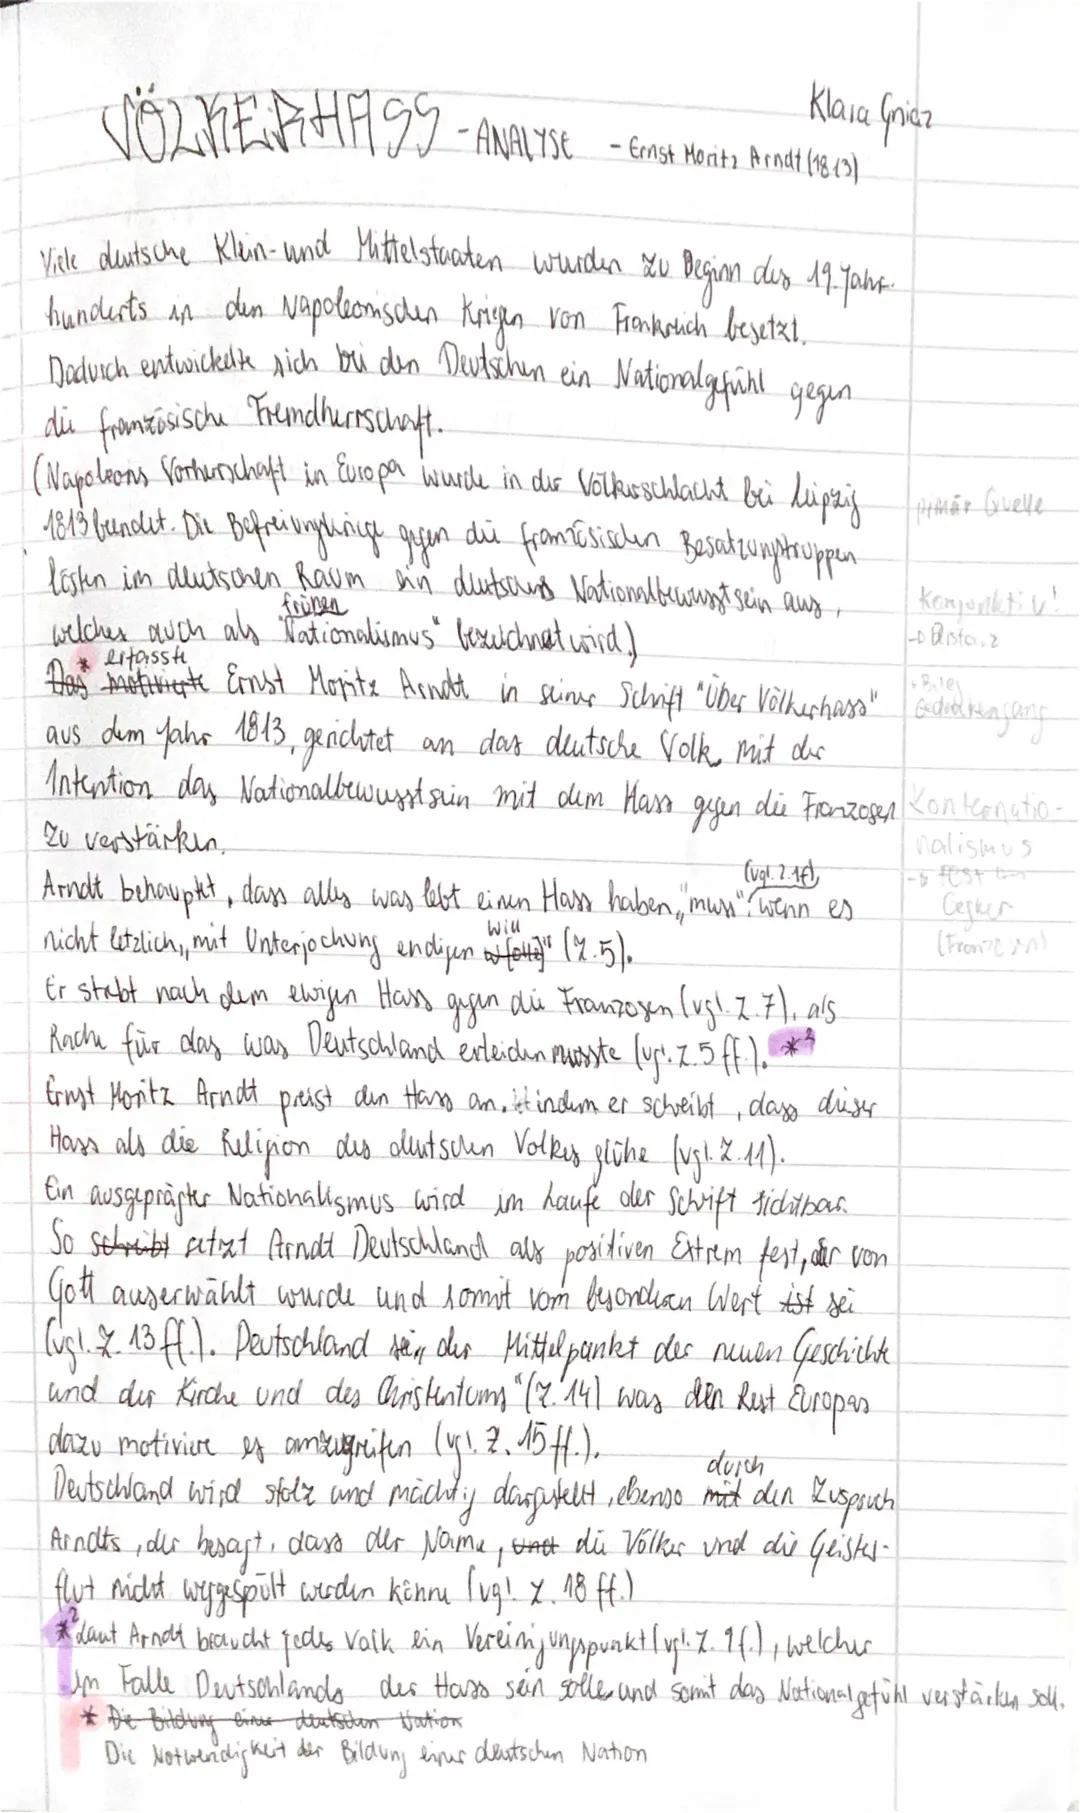 VÖLKERHASS - ANALYSE - Ernst Moritz Arndt (1813)
Klara Gniez
Viele deutsche Klein- und Mittelstaaten wurden zu Beginn des 19. Jahr-
hunderts in den Napoleonischen Kriegen von Frankreich besetzt.
Dadurch entwickelte sich bei den Deutschen ein Nationalgefühl gegen
die französische Fremdherrschaft.
(Napoleons Vorherrschaft in Europa wurde in der Völkerschlacht bei Leipzig
1813 beendet. Die Befreiungskriege gegen die französischen Besatzungstruppen
lösten im deutschen Raum ein deutsches Nationalbewusstsein aus,
frühen
welches auch als "Nationalismus" bezeichnet wird.)
* erfasste
Das motivierte Ernst Moritz Arndt in seiner Schrift "Über Völkerhass"
aus dem Jahr 1813, gerichtet an das deutsche Volk, mit der
Intention das Nationalbewusstsein mit dem Hass gegen die Franzosen
zu verstärken.
(vgl. Z. 1f),
Arndt behauptet, dass alles was lebt einen Hass haben „muss", wenn es
will
nicht letzlich „mit Unterjochung endigen w[ollte]" (Z.5).
Er strebt nach dem ewigen Hass gegen die Franzosen (vgl. Z. 7), als
Rache für das was Deutschland erleiden musste (vgl. Z. 5 ff.). *²
Ernst Moritz Arndt preist den Hass an, indem er schreibt, dass dieser
Hass als die Religion des deutschen Volkes glühe (vgl. Z. 11).
Ein ausgeprägter Nationalismus wird im Laufe der Schrift sichtbar.
So schreibt setzt Arndt Deutschland als positiven Extrem fest, der von
Gott auserwählt wurde und somit vom besonderen Wert ist sei
(vgl. Z. 13 ff.). Deutschland sei „der Mittelpunkt der neuen Geschichte
und der Kirche und des Christentums" (Z. 14) was den Rest Europas
dazu motiviere es anzugreifen (vgl. Z. 15 ff.).
durch
Deutschland wird stolz und mächtig dargestellt, ebenso mit den Zuspruch
Arndts, der besagt, dass der Name, und die Völker und die Geister-
flut nicht weggespült werden könne (vgl. Z. 18 ff.)
*² Laut Arndt braucht jedes Volk ein Vereinigungspunkt (vgl. Z. 9f.), welcher
im Falle Deutschlands der Hass sein solle und somit das Nationalgefühl verstärken soll.
* Die Bildung einer deutschen Nation
Die Notwendigkeit der Bildung einer deutschen Nation
primär Quelle
Konjunktiv!
-> Distanz
Gedankengang
nalismus
Gegner
(Franzosen)